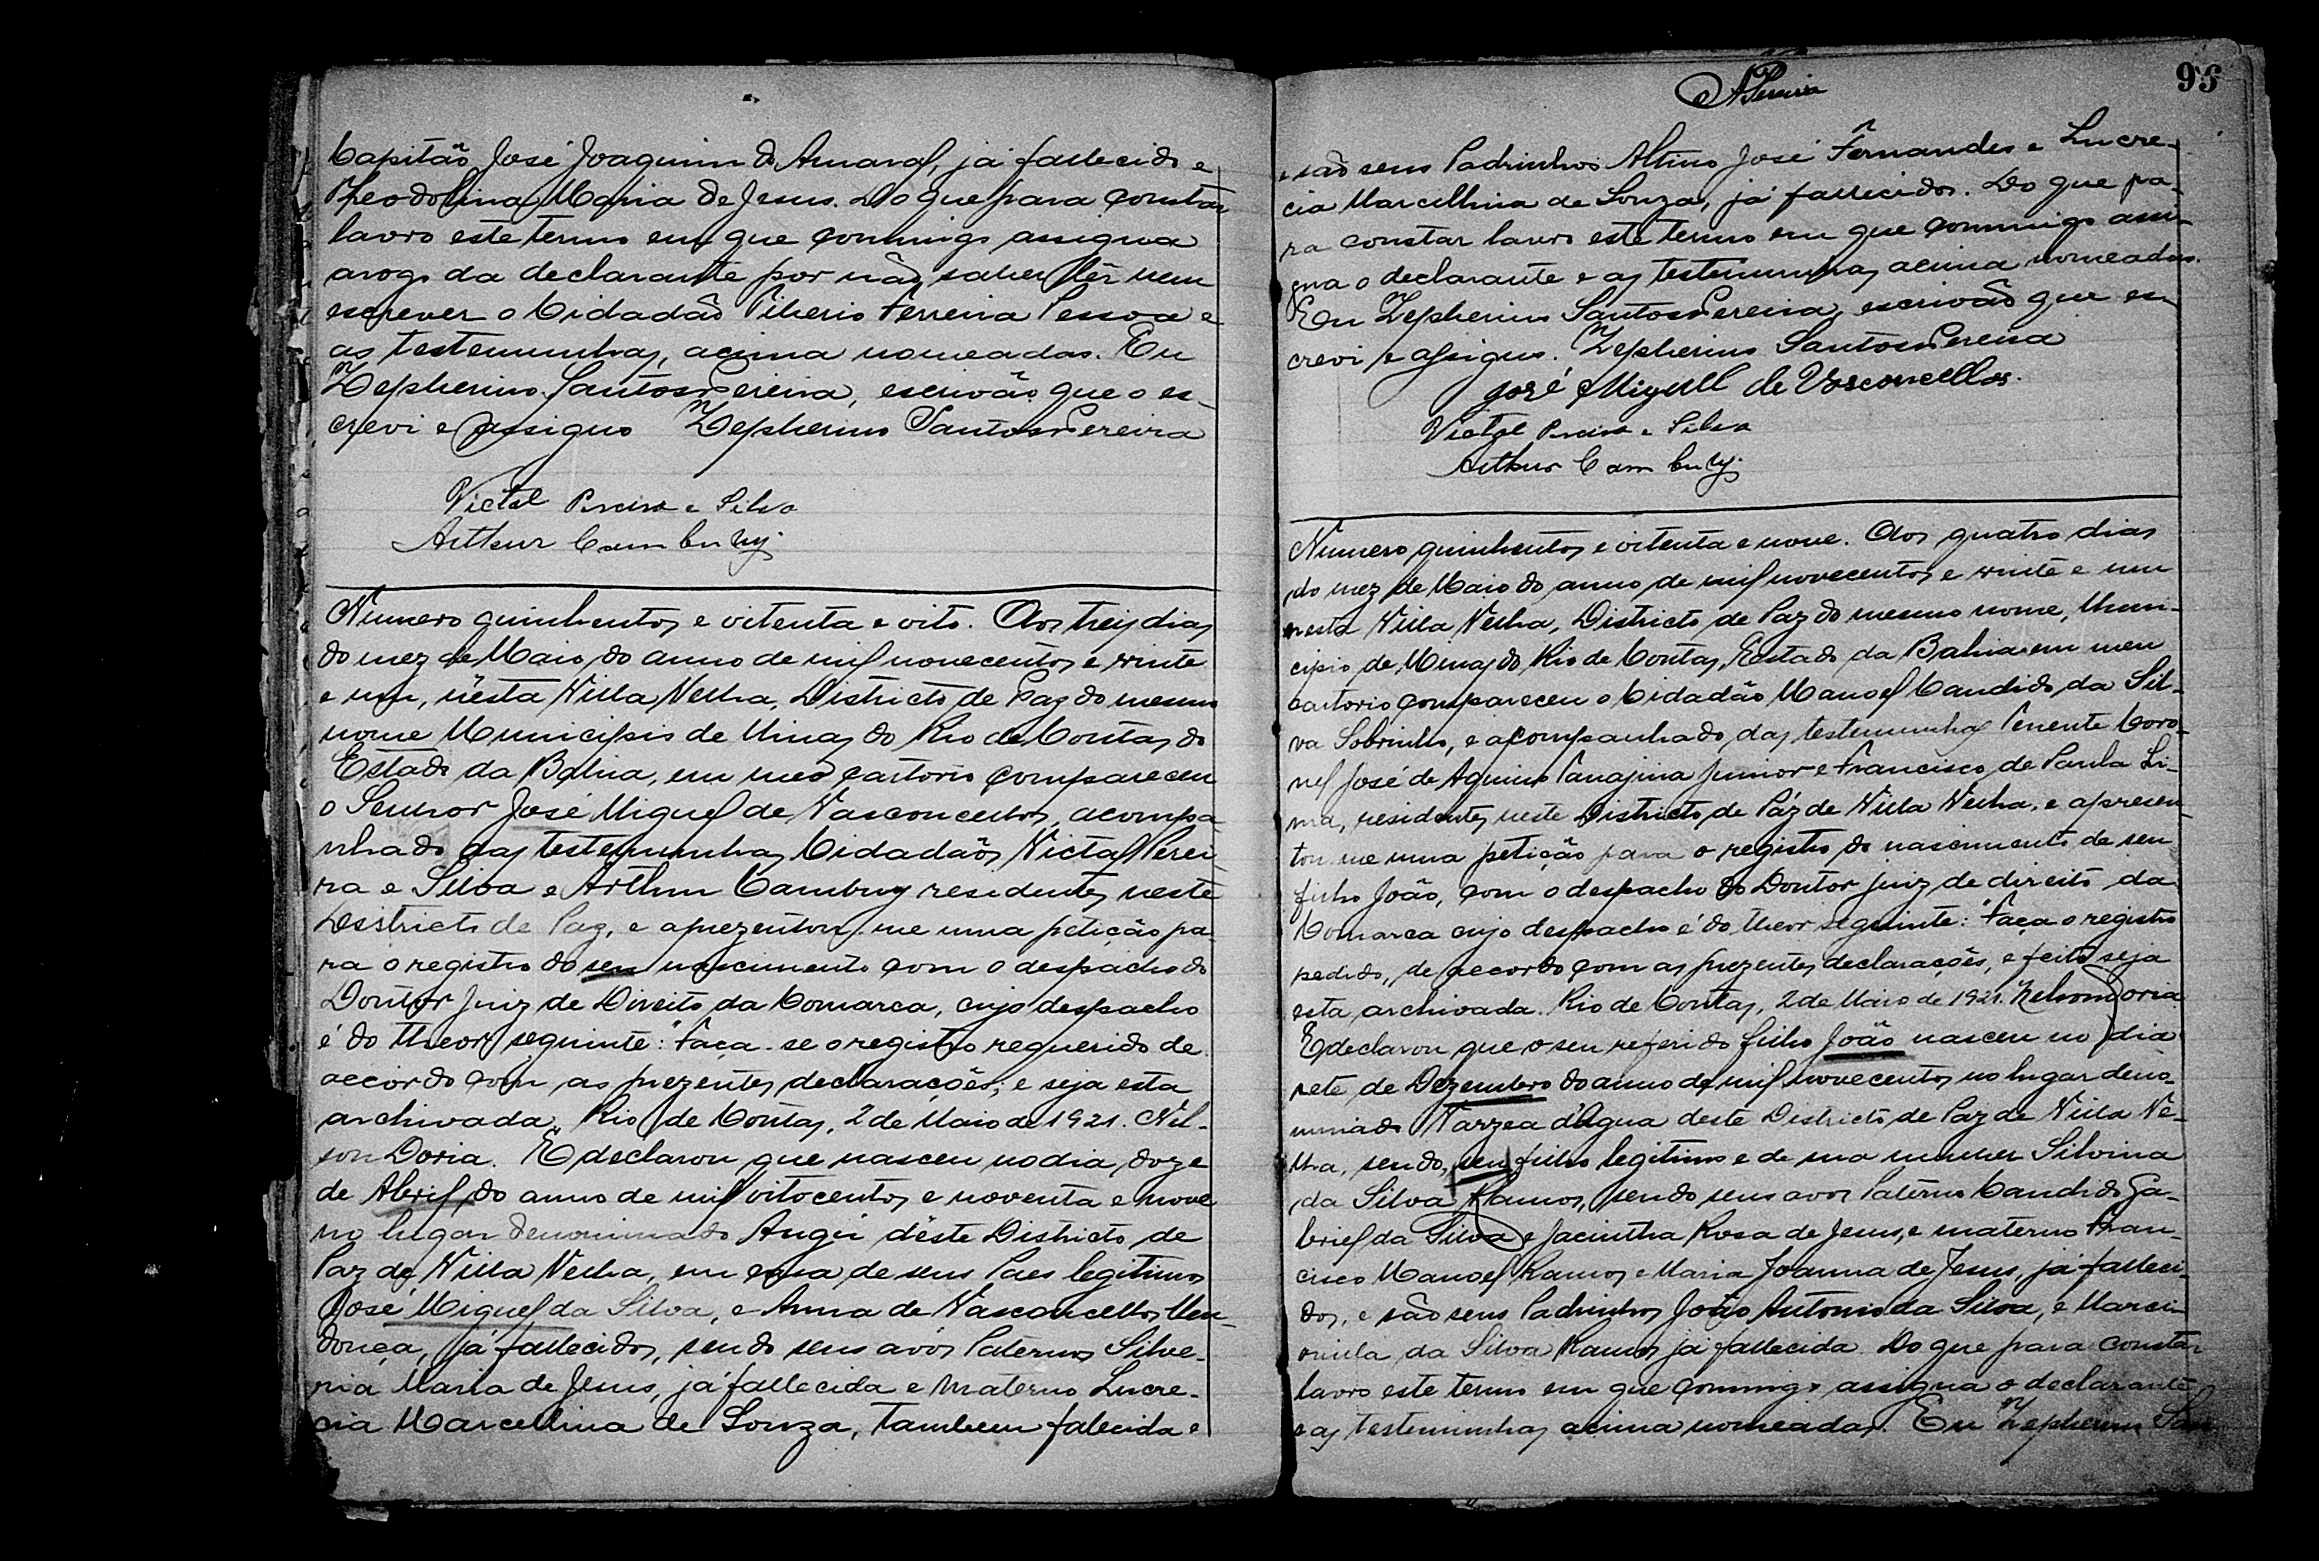 Capitão José Joaquim do Amaral, já fallecido e
Theodolina Maria de Jesus. Do que para constar
lavro este termo em que commigo assigna
arogo da declarante por não saber lêr nem
escrever o Cidadão Tiberio Ferreira Pessoa e
as testemunhas, acima nomeadas. Eu
Zepherino Santos Pereira, escrivão que o es-
crevi e assigno Zepherino Santos Pereira
Victal Pereira e Silva
Arthur Cambuhy
Numero quinhentos e oitenta e oito. Aos trez dias
do mez de Maio do anno de mil novecentos e vinte
e um, nesta Villa Velha, Districto de Paz do mesmo
nome Municipio de Minas do Rio de Contas do
Estado da Bahia, em meo cartorio compareceu
o Senhor José Miguel de Vasconcellos, acompa-
nhado das testemunhas Cidadãos Victal Perei-
ra e Silva e Arthur Cambuy residentes neste
Destricto de Paz, e aprezentou-me uma petição pa-
ra o registro do seu nascimento com o despacho do
Doutor Juiz de Direito da Comarca, cujo despacho
é do theor seguinte: "Faça-se o registro requerido de
accordo com as prezentes declarações; e seja esta
archivada. Rio de Contas, 2 de Maio de 1921. Nel-
son Doria. E declarou que nasceu no dia doze
de Abril do anno de mil oitocentos e noventa e nove
no lugar denominado Angú déste Districto de
Paz de Villa Velha, em casa de seus Paes legitimos
José Miguel da Silva, e Anna de Vasconcellos Men-
donça, já fallecidos, sendo seus avós Paternos Silve-
ria Maria de Jesus, já fallecida e Materno Lucre-
cia Marcellina de Souza, tambem falecida e
APereira
96
e são seus Padrinhos Altino José Fernandes e Lucre-
cia Marcellina de Souza, já fallecidos. Do que pa-
ra constar lavro este termo em que commigo assi-
gna o declarante e as testemunhas acima nomeadas.
Eu Zepherino Santos Pereira, escrivão que es-
crevi e assigno. Zepherino Santos Pereira
José Miguel de Vasconcellos.
Victal Pereira e Silva
Arthur Cambuhy
Numero quinhentos e oitenta e nove. Aos quatro dias
do mez de Maio do anno de mil novecentos e vinte e um
nesta Villa Velha, Districto de Paz do mesmo nome, Muni-
cipio de Minas do Rio de Contas, Estado da Bahia em meu
cartorio compareceu o Cidadão Manoel Candido da Sil-
va Sobrinho, e acompanhado das testemunhas Tenente Coro-
nel José de Aquino Tanajura Junior e Francisco de Paula Li-
ma, residentes neste Districto de Páz de Villa Velha, e aprecen-
tou-me uma petição para o registro do nascimento de seu
filho João, com o despacho do Doutor Juiz de direito da
Comarca cujo despacho é do theor seguinte: "Faça o registro
pedido, de accordo com as prezentes declarações, e feito seja
esta archivada. Rio de Contas, 2 de Maio de 1921. Nelson Doria
E declarou que o seu referido filho João nasceu no dia
sete de Dezembro do anno de mil novecentos no lugar deno-
minado Varzea d'Agua deste Districto de Paz de Villa Ve-
lha, sendo seu filho legitimo e de sua mulher Silvina
da Silva Ramos, sendo seus avos Paterno Candido Ga-
briel da Silva e Jacintha Rosa de Jesus, e materno Fran-
cisco Manoel Ramos e Maria Joanna de Jesus, já falleci-
dos, e são seus Padrinhos João Antonio da Silva, e Marci-
onilla da Silva Ramos já fallecida. Do que para constar
lavro este termo em que commigo assigna o declarante
e as testemunhas acima nomeadas. Eu Zepherino San